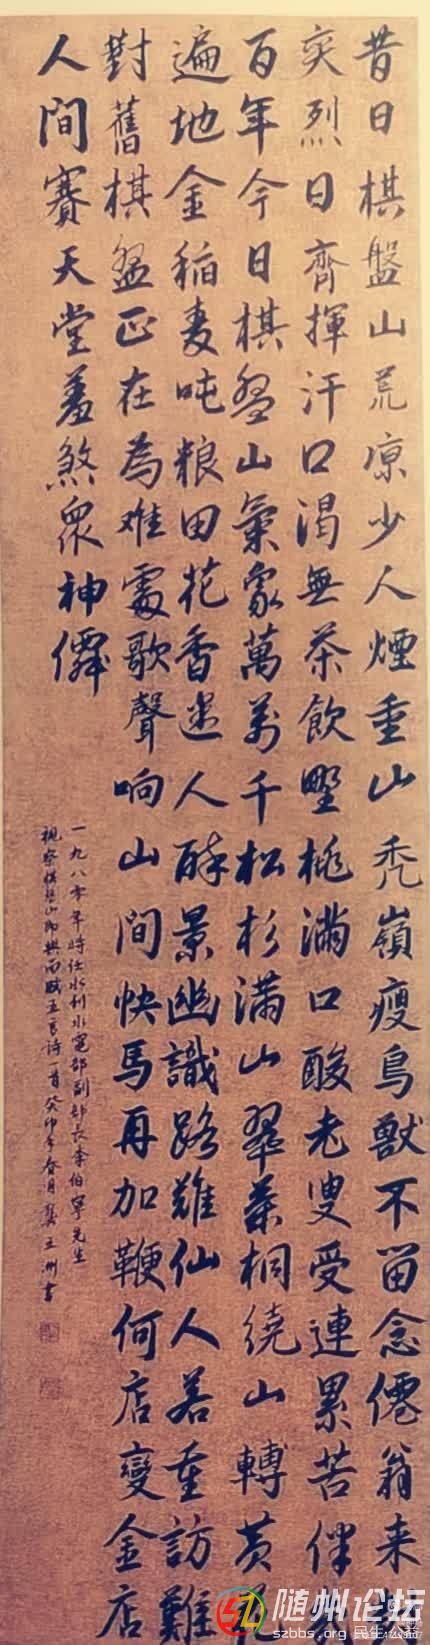 昔日棋盤山荒凉少人煙重山秃嶺瘦鳥獸不留念僊翁来對
奕烈日齊揮汗口渴無茶飲野桃滿口酸老叟受連累苦伴
百年今日棋盤山氣象萬萬千松杉滿山翠葉桐繞山轉黄
遍地金稻麦吨粮田花香迷人醉景幽識路難仙人若重訪難
對舊棋盤正在為难處歌聲响山間快馬再加鞭何店變金店
人間賽天堂羞煞眾神僊
一九八零年時任水利水電部副部長李伯寧先生
視察棋盤山即興而賦五言诗一首癸卯年春月龔五洲書
随州论坛
szbbs.org 民生公益